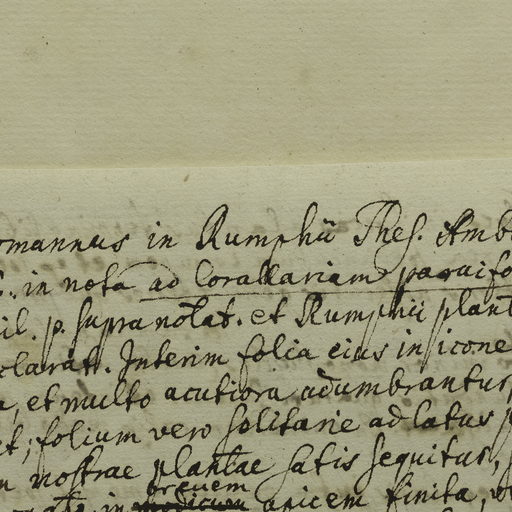 omannus in Rumphii Thes. Amb
in nota ad Corallariam parvifo
il. p. supra notat. et Rumphii plant
clarat. Interim folia eius in icone
, et multo acutiora adumbrantur,
et; folium vero solitarie ad latus
nostrae plantae satis sequitur,
brevem
in modicum apicem finita,